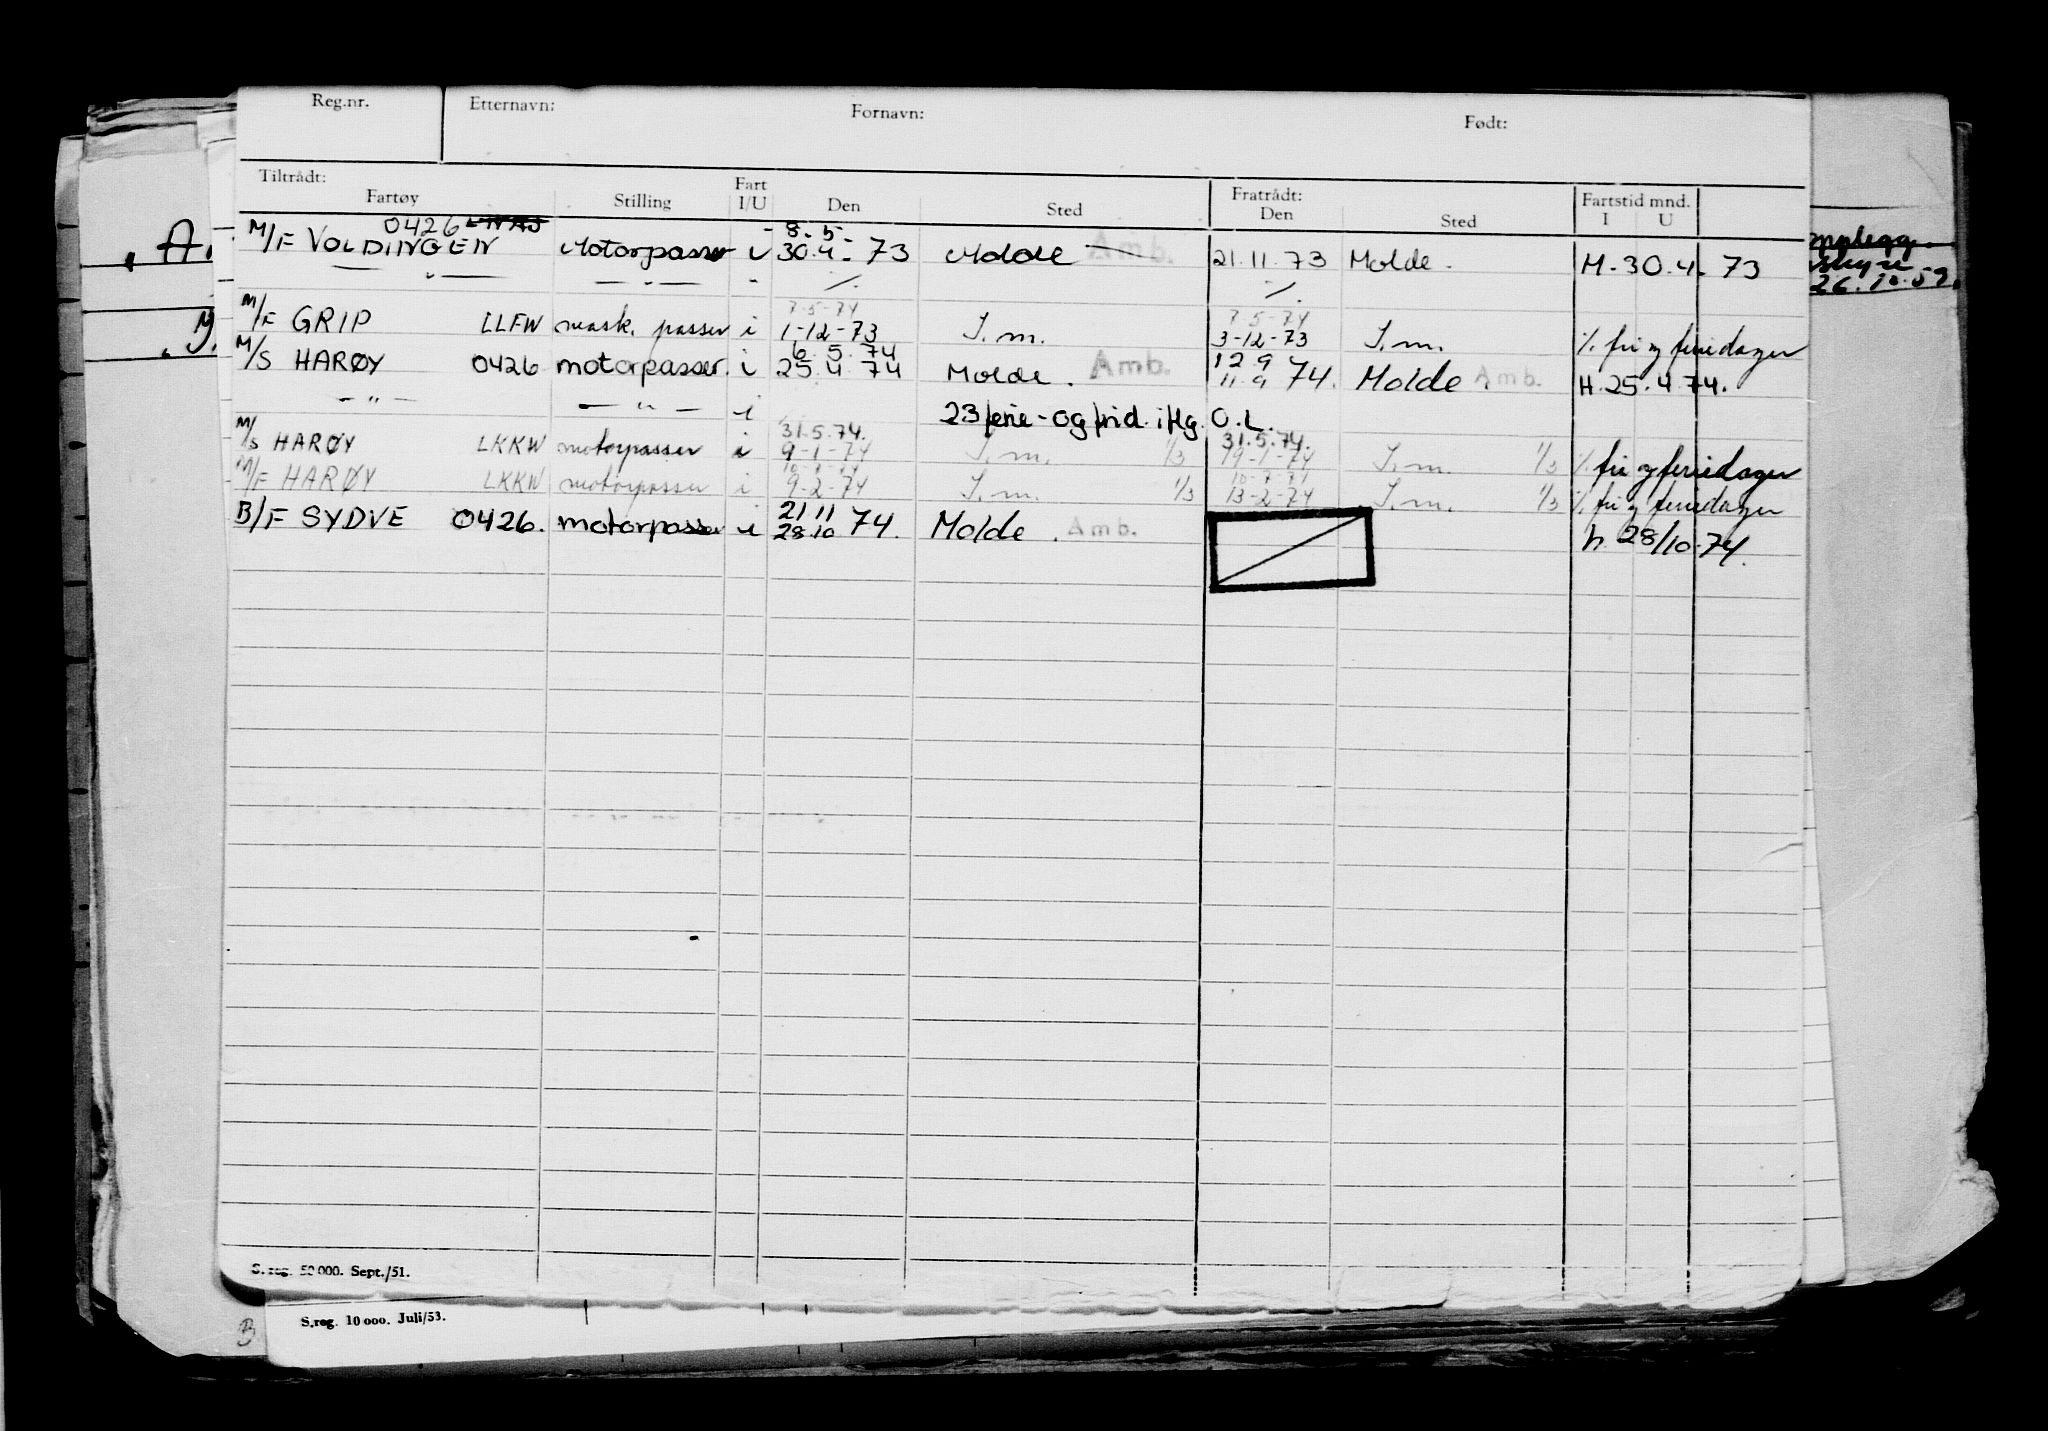 Reg.nr. Etternavn: Fornavn: Født:
Tiltrådt: Fartøy Stilling Fart I/U Den Sted Fratrådt: Den Sted Fartstid mnd. I U
0426 8.5
M/F VOLDINGEN Motorpasser i 30.4.-73 Molde Amb. 21.11.73 Molde. H.30.4.73
— " — — " — - ./. ./.
7-5-74 7-5-74
M/F GRIP LLFW mask. passer i 1-12-73 S.m. 3-12-73 S.m. ./. fri og feriedager
6.5.74 12.9
M/S HARØY 0426 motorpasser. i 25.4.74 Molde. Amb. 11.9 74. Molde Amb. H.25.4.74.
— " — — " — i 23 ferie-og frid. i flg. O.L.
31.5.74. 31.5.74.
M/S HARØY LKKW motorpasser i 9-1-74 S.m. 1/3 19-1-74 S.m. 1/3 ./. fri og feriedager
10-7-74 10-7-74
M/F HARØY LKKW motorpasser i 9-2-74 S.m. 1/3 13-2-74 S.m. 1/3 ./. fri og feriedager
21.11
B/F SYDVE 0426. motorpasser i 28.10 74. Molde. Amb. h. 28/10-74.
26.10.59.
S.reg. 50 000. Sept./51.
S.reg. 10 000. Juli/53.
B